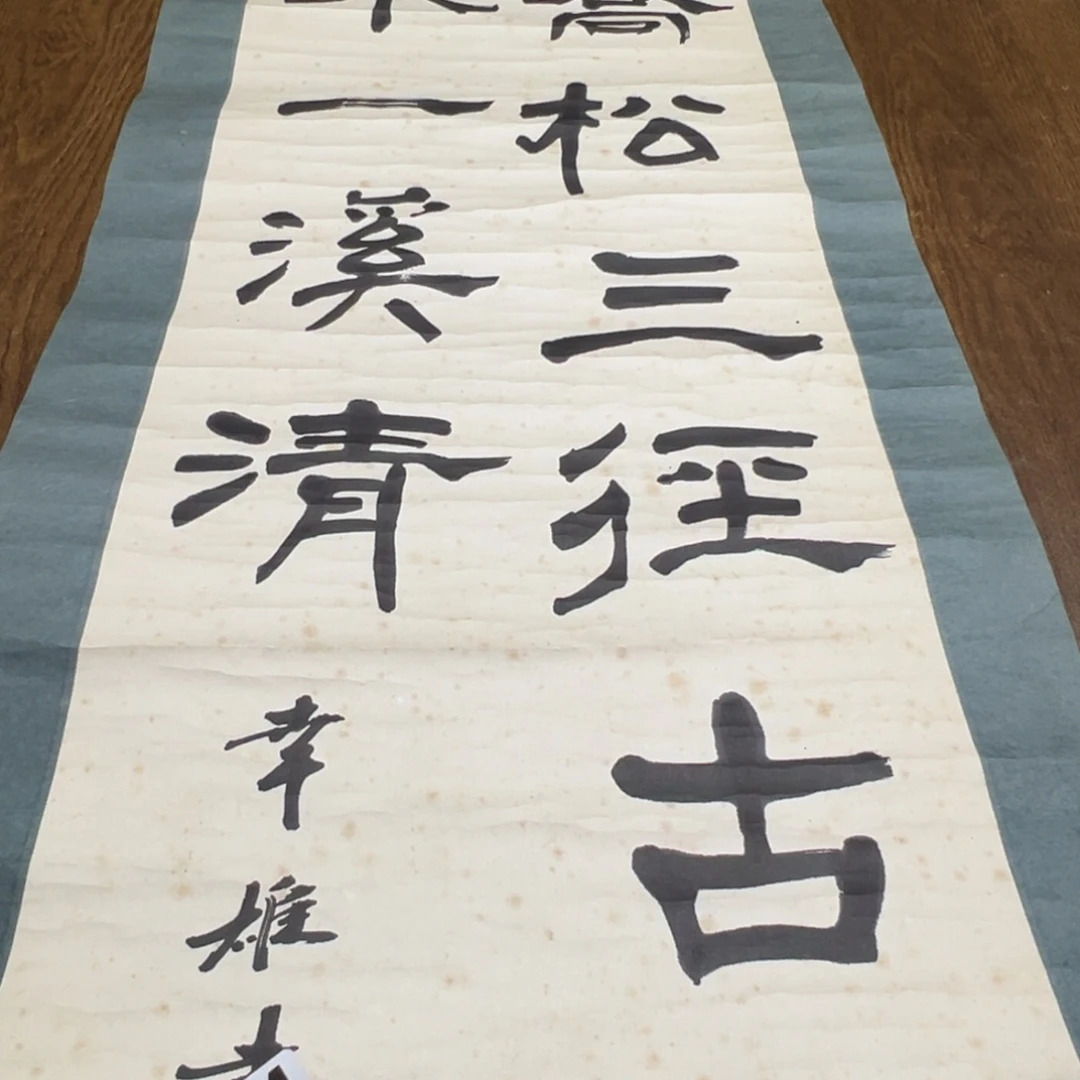 喬松三徑古
一溪清
幸雄